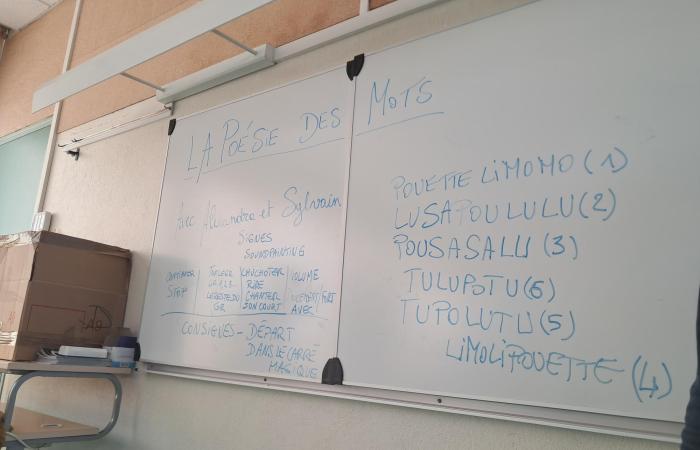 LA POÉSIE DES MOTS
Avec Alexandra et Sylvain
SIGNES
SOUNDPAINTING
CONTINUER
STOP
TOUT LE GR
CHUCHOTER
RIRE
CHANTER
SON COURT
VOLUME
FORT
AVEC
CONSIGNES - DÉPART
DANS LE CARRÉ
MAGIQUE
POUETTE LiMOMO (1)
LUSAPOULULU (2)
POUSASALU (3)
TULUPOTU (6)
TUPOLUTU (5)
LiMOLiPOUETTE (4)